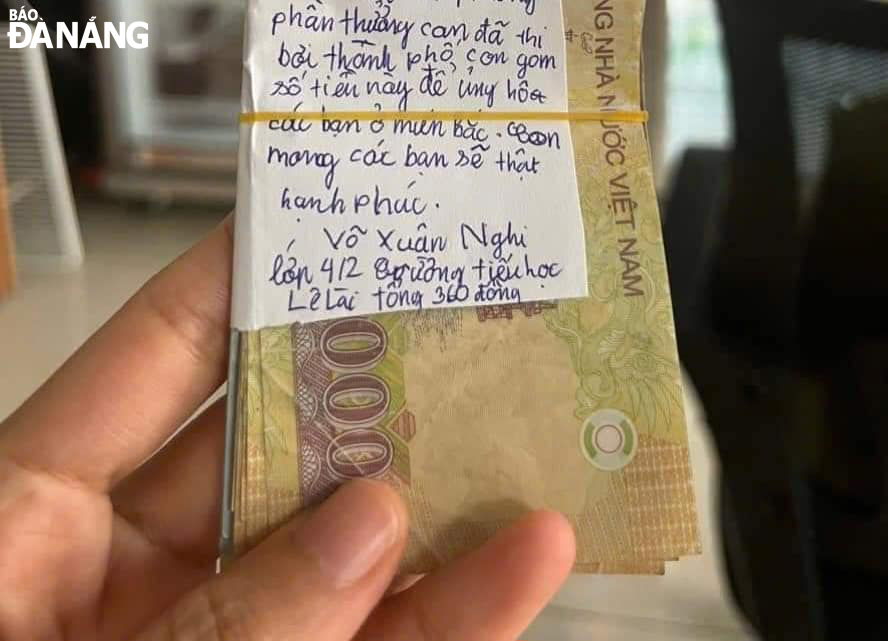 BÁO
ĐÀ NẴNG
phần thưởng con đã thi
bởi thành phố, con gom
số tiền này để ủng hộ
các bạn ở miền bắc. Con
mong các bạn sẽ thật
hạnh phúc.
Võ Xuân Nghi
lớp 4/2 trường tiểu học
Lê Lai tổng 360 đồng
NG NHÀ NƯỚC VIỆT NAM
000